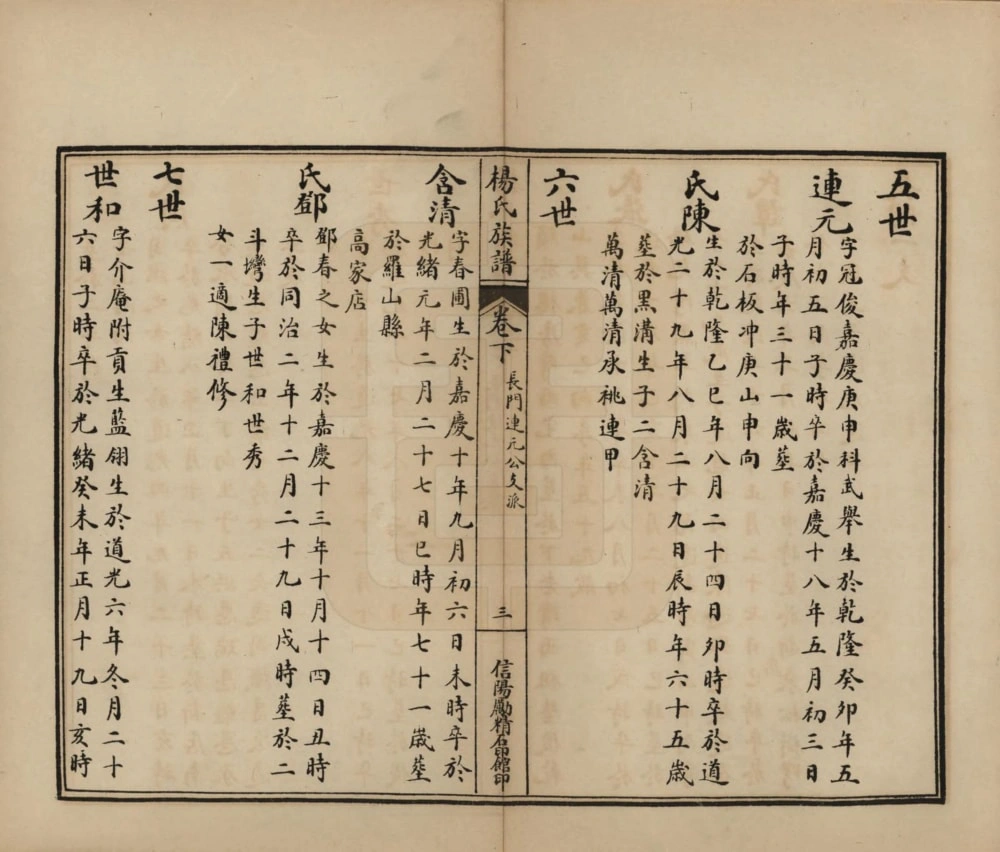 五世
連元
字冠俊嘉慶庚申科武舉生於乾隆癸卯年五
月初五日子時卒於嘉慶十八年五月初三日
子時年三十一歲墓
於石板冲庚山申向
氏陳
生於乾隆乙巳年八月二十四日卯時卒於道
光二十九年八月二十九日辰時年六十五歲
墓於黑溝生子二含清
萬清萬清承祧連甲
六世
楊氏族譜
卷下
長門連元公支派
三
信陽勵精石印館印
含清
字春圃生於嘉慶十年九月初六日未時卒於
光緒元年二月二十七日巳時年七十一歲墓
於羅山縣
高家店
氏鄧
鄧春之女生於嘉慶十三年十月十四日丑時
卒於同治二年十二月二十九日戌時墓於二
斗塆生子世和世秀
女一適陳禮修
七世
世和
字介庵附貢生藍翎生於道光六年冬月二十
六日子時卒於光緒癸未年正月十九日亥時